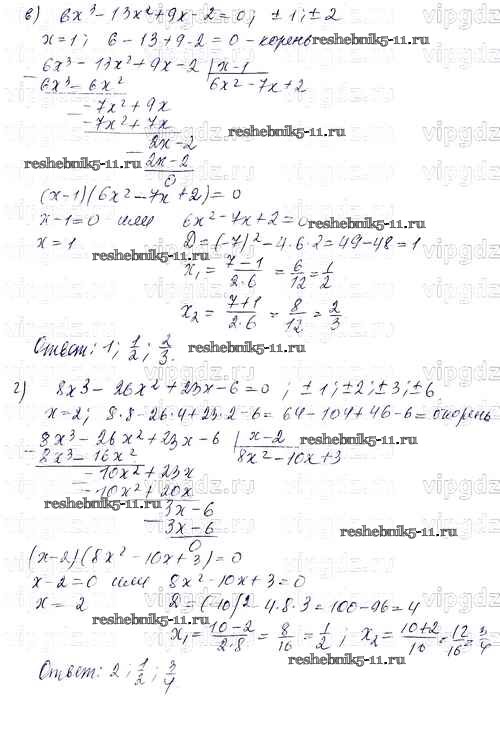 в) 6x³ - 13x² + 9x - 2 = 0; ± 1; ± 2
x = 1; 6 - 13 + 9 - 2 = 0 - корень
reshebnik5-11.ru
6x³ - 13x² + 9x - 2 | x - 1
6x³ - 6x² 6x² - 7x + 2
- 7x² + 9x
- 7x² + 7x
reshebnik5-11.ru
2x - 2
reshebnik5-11.ru 2x - 2
0
(x - 1)(6x² - 7x + 2) = 0
x - 1 = 0 или 6x² - 7x + 2 = 0
reshebnik5-11.ru
x = 1 D = (-7)² - 4·6·2 = 49 - 48 = 1
reshebnik5-11.ru
x₁ = (7 - 1)/(2·6) = 6/12 = 1/2
x₂ = (7 + 1)/(2·6) = 8/12 = 2/3
Ответ: 1; 1/2; 2/3.
reshebnik5-11.ru
г) 8x³ - 26x² + 23x - 6 = 0; ± 1; ± 2; ± 3; ± 6
x = 2; 8·8 - 26·4 + 23·2 - 6 = 64 - 104 + 46 - 6 = 0 корень
8x³ - 26x² + 23x - 6 | x - 2
reshebnik5-11.ru
8x³ - 16x² 8x² - 10x + 3
- 10x² + 23x
- 10x² + 20x
reshebnik5-11.ru
3x - 6
3x - 6
reshebnik5-11.ru
0
(x - 2)(8x² - 10x + 3) = 0
x - 2 = 0 или 8x² - 10x + 3 = 0
x = 2 D = (-10)² - 4·8·3 = 100 - 96 = 4
reshebnik5-11.ru
x₁ = (10 - 2)/(2·8) = 8/16 = 1/2; x₂ = (10 + 2)/16 = 12/16 = 3/4
reshebnik5-11.ru
Ответ: 2; 1/2; 3/4
vipgdz.ru